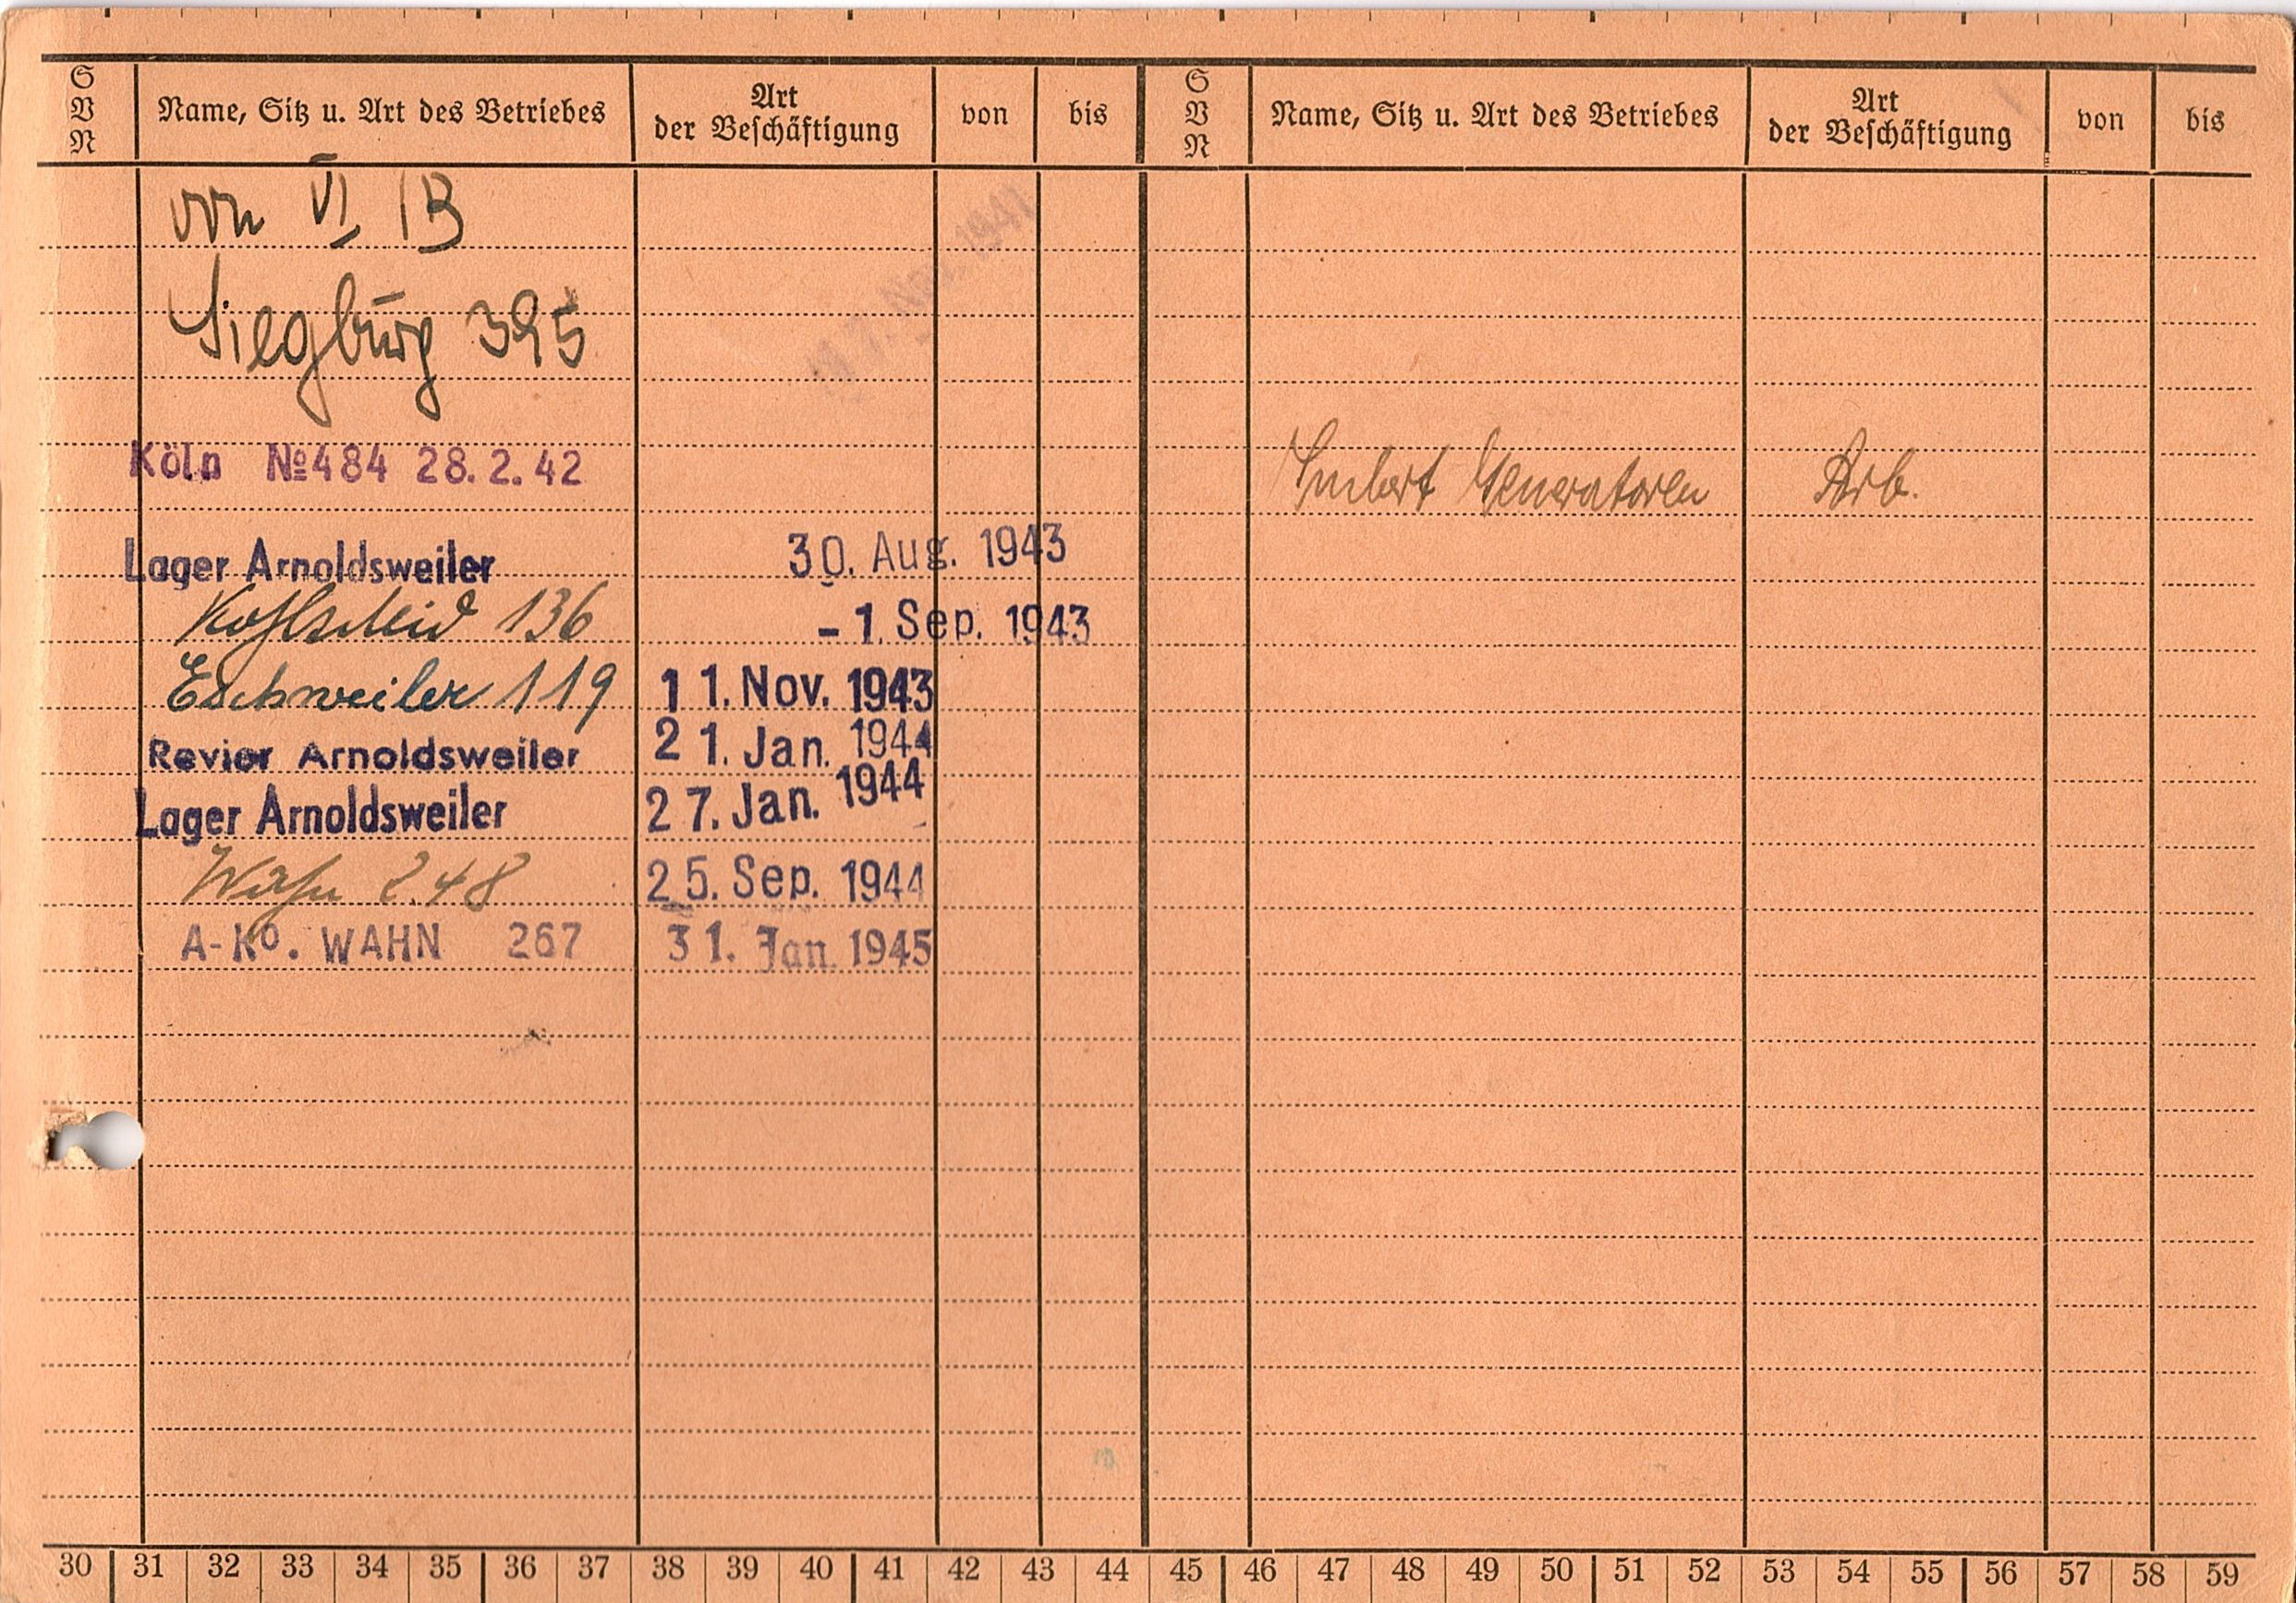 S V N
Name, Sitz u. Art des Betriebes
Art der Beschäftigung
von
bis
S V N
Name, Sitz u. Art des Betriebes
Art der Beschäftigung
von
bis
von VI B
Siegburg 395
Nov. 1941
Köln №484 28.2.42
Imbert Generatoren Arb.
Lager Arnoldsweiler 30. Aug. 1943
Kohlscheid 136 - 1. Sep. 1943
Eschweiler 119 11. Nov. 1943
Revier Arnoldsweiler 21. Jan. 1944
Lager Arnoldsweiler 27. Jan. 1944
Wahn 248 25. Sep. 1944
A-Ko. WAHN 267 31. Jan. 1945
30 31 32 33 34 35 36 37 38 39 40 41 42 43 44 45 46 47 48 49 50 51 52 53 54 55 56 57 58 59